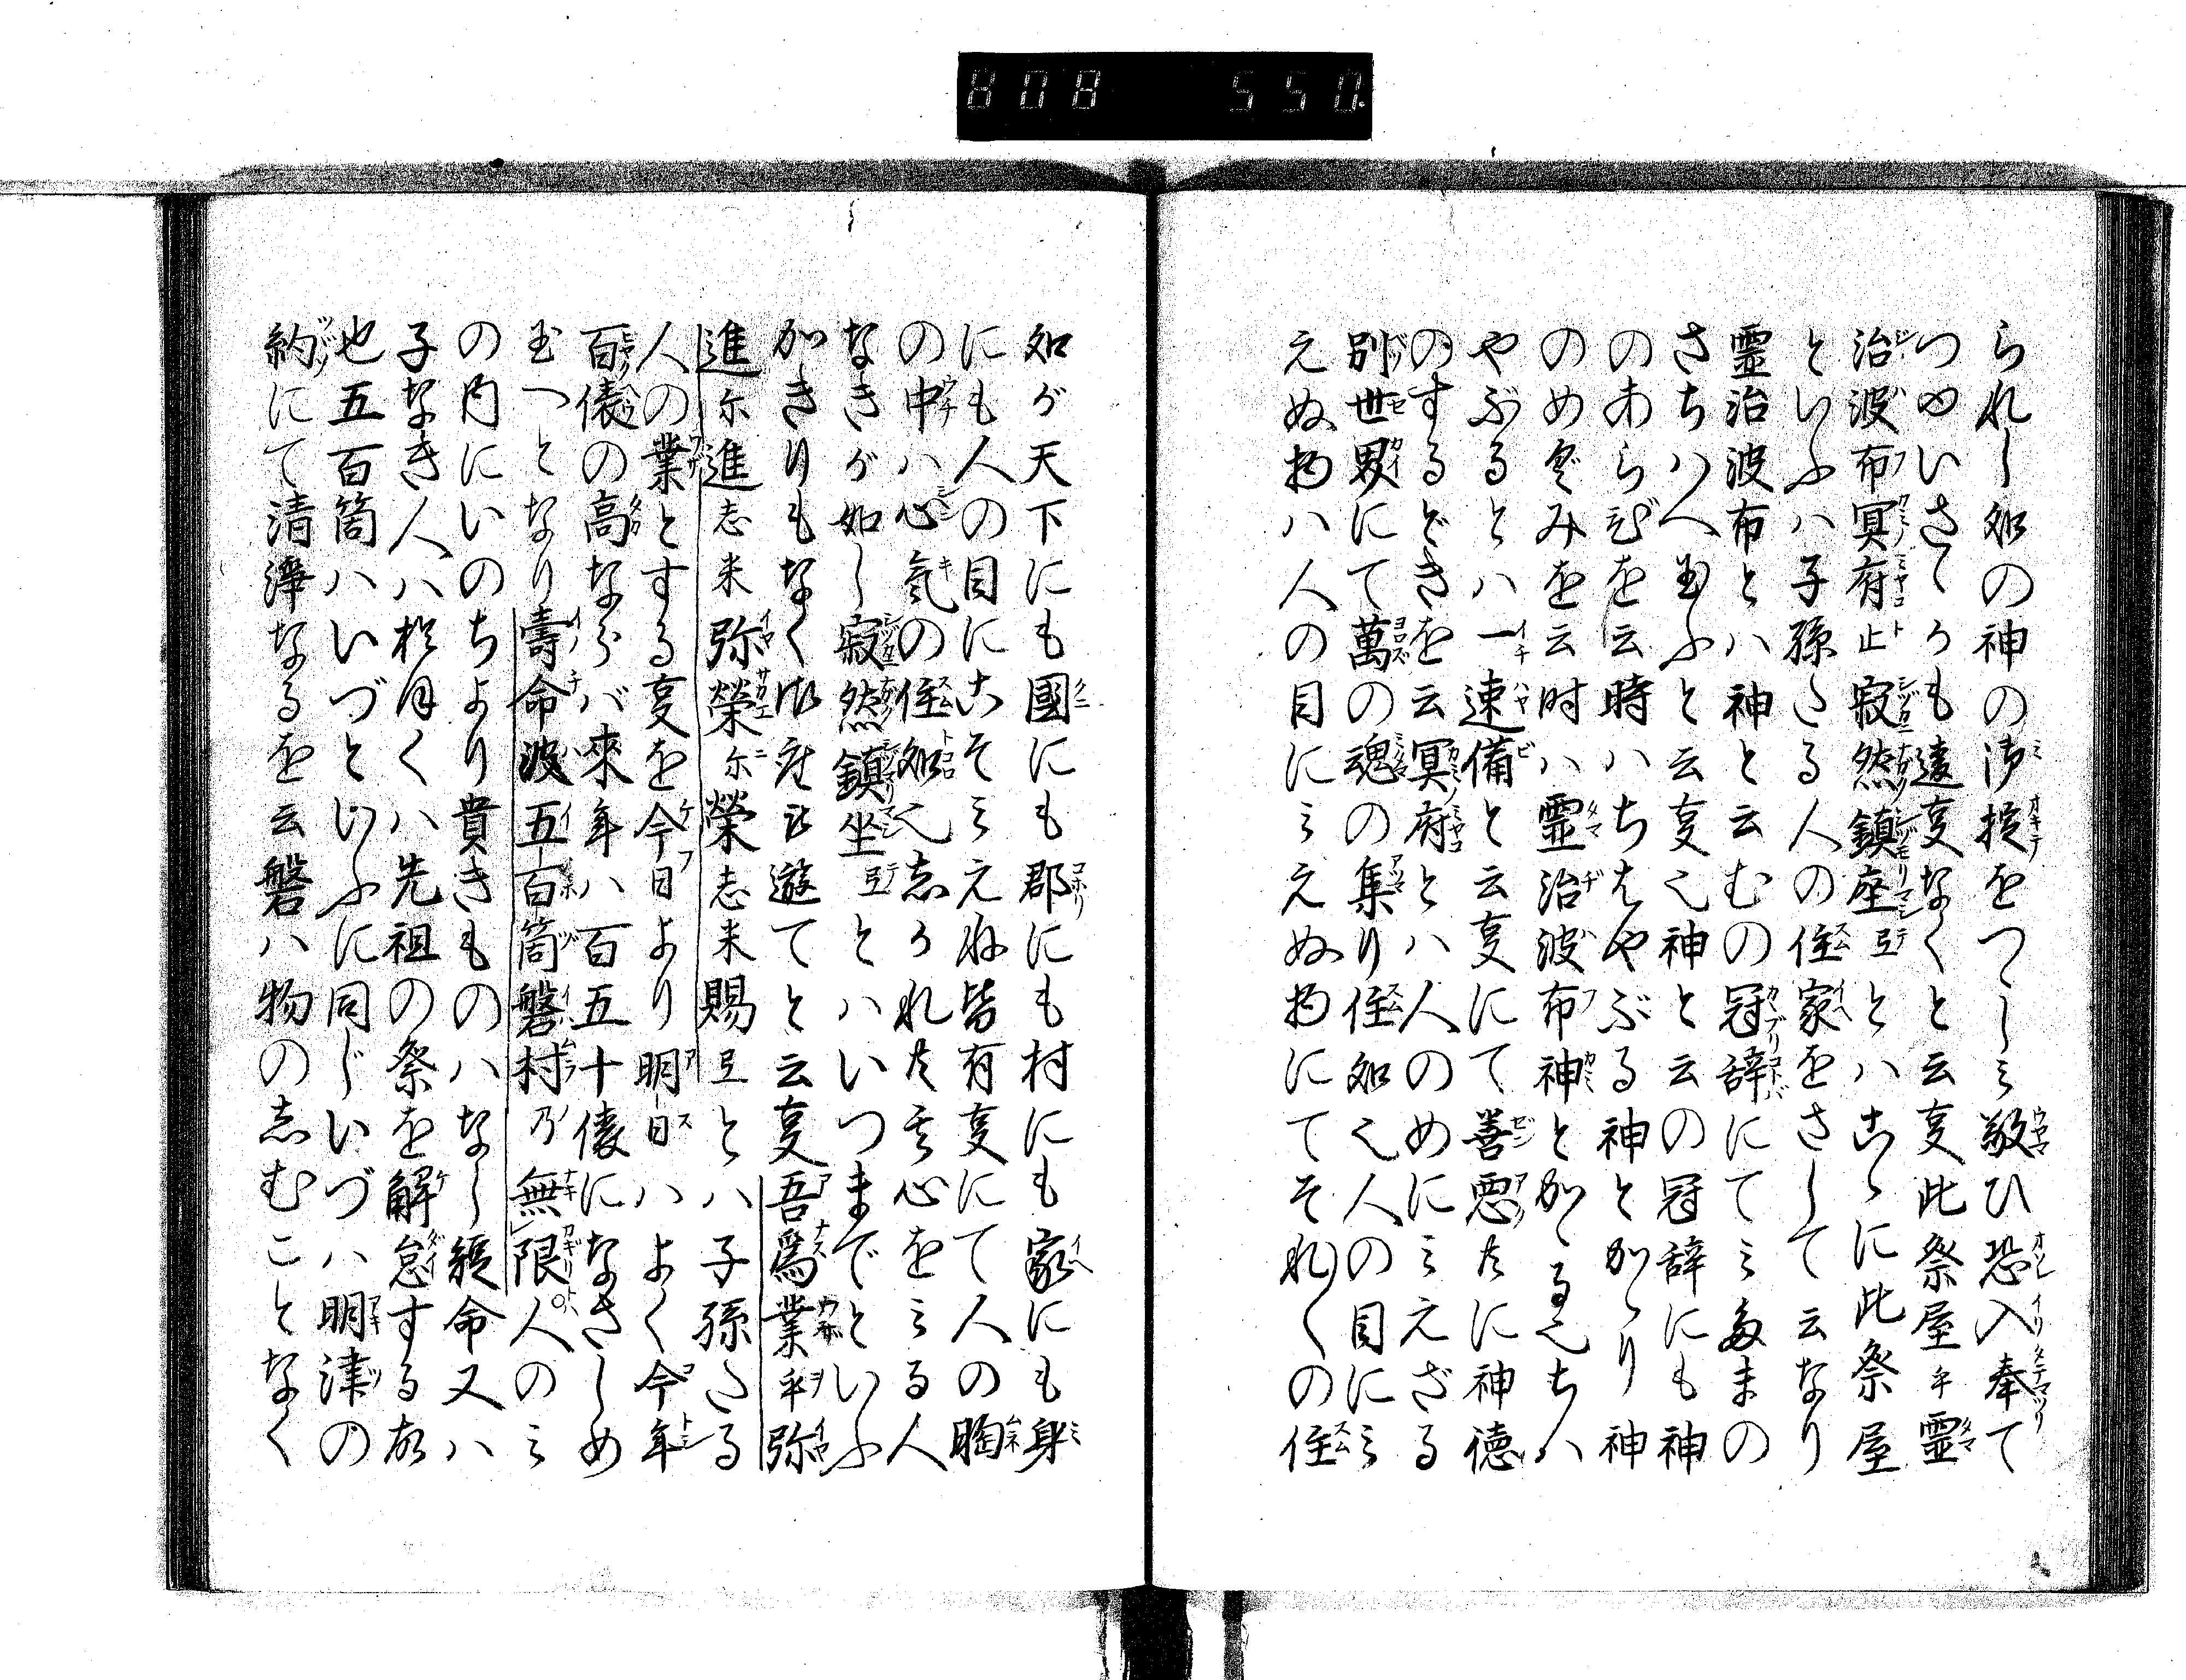 808 550.
られし処の神の御掟をつゝしミ敬ひ恐入奉て
つゆいさゝかも違事なくと云事此祭屋乎霊
治波布冥府止寂然鎮座弖とハあゝに此祭屋
といふハ子孫たる人の住家をさして云なり
霊治波布とハ神と云むの冠辞にてミたまの
さちハへ玉ふと云事也神と云の冠辞にも神
のあらびを云時ハちはやぶる神とかゝり神
のめぐみを云时ハ霊治波布神とかゝる也ちハ
やぶるとハ一速備と云事にて善悪共に神徳
のするどきを云冥府とハ人のめにミえざる
別世界にて萬の魂の集り住処也人の目にミ
えぬ物ハ人の目にミえぬ物にてそれ〳〵の住
処が天下にも國にも郡にも村にも家にも身
にも人の目にこそミえね皆有事にて人の胸
の中ハ心氣の住処也志かれ共其心をミる人
なきが如し寂然鎮坐弖とハいつまでといふ
かきりもなく御在座遊てと云事吾為業乎弥
進尓進志米弥榮尓榮志米賜弖とハ子孫たる
人の業とする事を今日より明日ハよく今年
百俵の高ならバ來年ハ百五十俵になさしめ
玉へとなり壽命波五百箇磐村乃無限人のミ
の内にいのちより貴きものハなし縦命又ハ
子なき人ハ程月くハ先祖の祭を解怠する故
也五百箇ハいづといふに同じいづハ明津の
約にて清浄なるを云磐ハ物の志むことなく